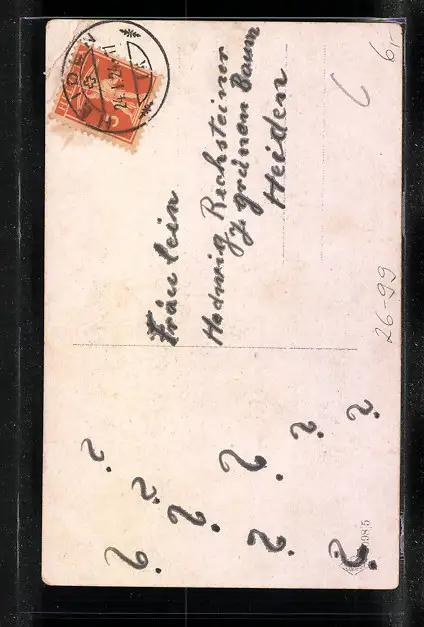 HEIDEN
Fräulein
Hedwig Rechsteiner
z. grünen Baum
Heiden
? ? ? ? ? ? ? ? ?
6,-
26-99